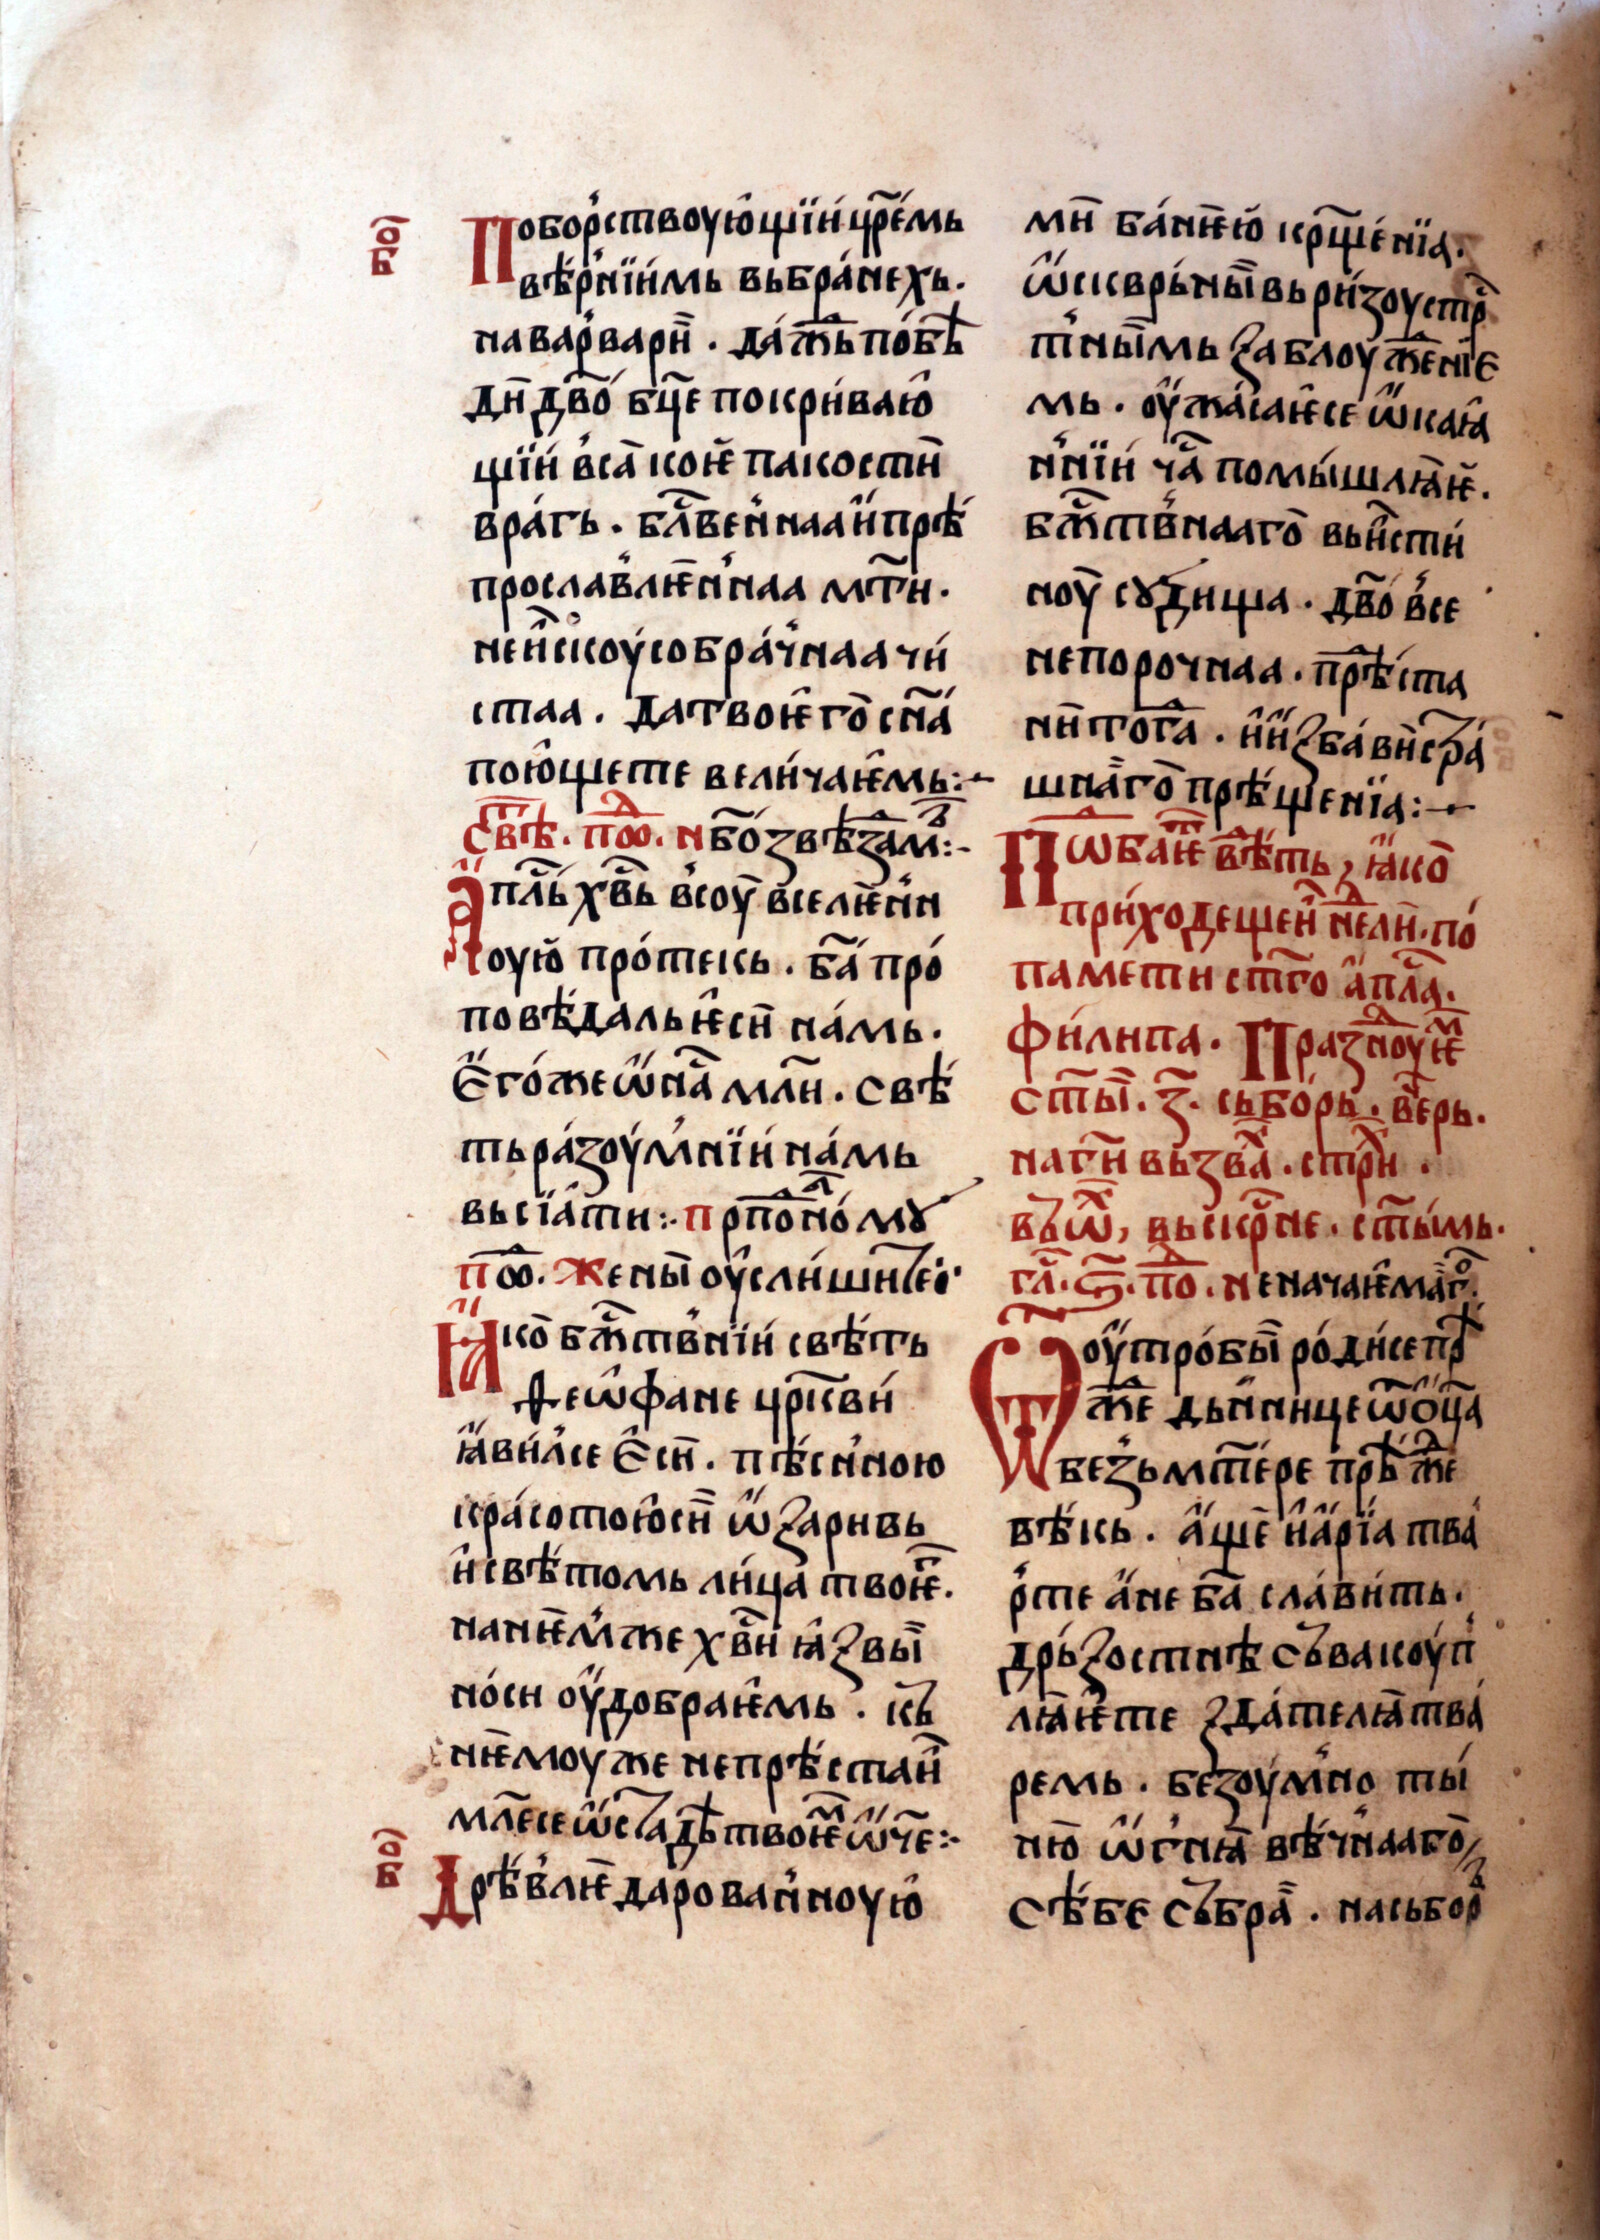 бо҃
Побо́рствоую̂щїи́ цр҃е́мь
вѣ́рнїи́мь вьбра́нехь.
на ва́рварꙑ. да́ждь по́бѣ
ди҃ дв҃о бц҃е покри́ваю̂
щїи́ вса̀ кон̑ѥ пакости
вра́гь. бл҃ве́ннаа и҆ прѣ́
просла́влѥннаа мт҃и.
неи́скоу́собра́чнаа чи́
стаа. да твоѥ̂го̀ сн҃а
пою̂ще те вели́чаѥ̂мь:-
Свѣ. п҃ѡ. нбо̀ звѣзам:-
Апль҃ хв҃ь всоу̀ вселѥ́нн
оую̀ про́текь. ба҃ про́
повѣ́даль ѥ̂си на́мь.
Ѐго́же ѡ҆ на҃ мл҃и. свѣ́
ть ра́зоу́мнїи́ на́мь
вьсїа́ти:- прпо҃но́мꙋ
п҃ѡ. Женꙑ̀ оу̂сли́шите:·
Ꙗко̀ бж҃тв́нїи́ свѣ́ть
Ѳеѡ̂фане цр҃кви́
ꙗ҆ви́лсе ѐси. пѣ́сн́ною
кра́сотою̂ си ѡ҆зари́вь
и҆ свѣ́томь ли́ца твоѥ҃.
на нѥ́мже хв҃и ꙗ҆звꙑ̀
но́си оу҆добраѥ̂мь. кь
нѥмоуже непрѣ́стаи́
мл҃есе ѡ҆ ста́дѣ твоѥ҃м ѡ҆ч҃е:-
бо҃
Дрѣ́влѥ дарова́нноую̂
ми҃ ба́нѥю̀ кр҃ще́нїа.
ѡ҆сквр́ьнꙑ̀вь ри́зоу стр҃
т́нꙑ̀мь заблоу́жденїе
мь. оу҆жа́саѥ̂се ѡ҆каꙗ̂
н́нїи́ ча҃ помꙑ́шлꙗѥ.
бж҃твнааго̀ вьи́сти́
ноу̀ сꙋдища. дв҃о все
непорочнаа. прѣ́ста
ни тога҃. и҆ и҆зба́ви стра́
шнаго̀ прѣ́щенїа:-
Пѡ҃баѥ҃ вѣ́ть, ꙗ҆ко̀
при́ходещеи҃ не҃ли. по́
памети ст҃го а҆п҃ла.
фи́липа. Празноуѥ҃м
ст҃ꙑ. з҃. сьбо́рь. вер҃ь.
на ги вьзва҃х. стр҃и.
вьѡ҃х, вьскр҃не. ст҃ꙑ́мь.
гл҃. ѕ҃. по҃. Неначаѥ̂ма́го:
Ѿ оу҆тро́бꙑ̀ ро́дисе прѣ
жде дьн́нице ѿ о҆ц҃а
безь мт҃е́ре прѣ́жде
вѣ́кь. а҆ще и҆ а҆рїа тва́
рь те а҆ не ба҃ сла́вить.
дрь́зостнѣ сьвакоу́п
лꙗѥ̂ те зда́телꙗ тва́
ремь. безоу́мно тꙑ́
ню̀ ѡ҆гнꙗ̀ вѣ́чнааго̀
сѣ́бе сьбра̀. на сьбор